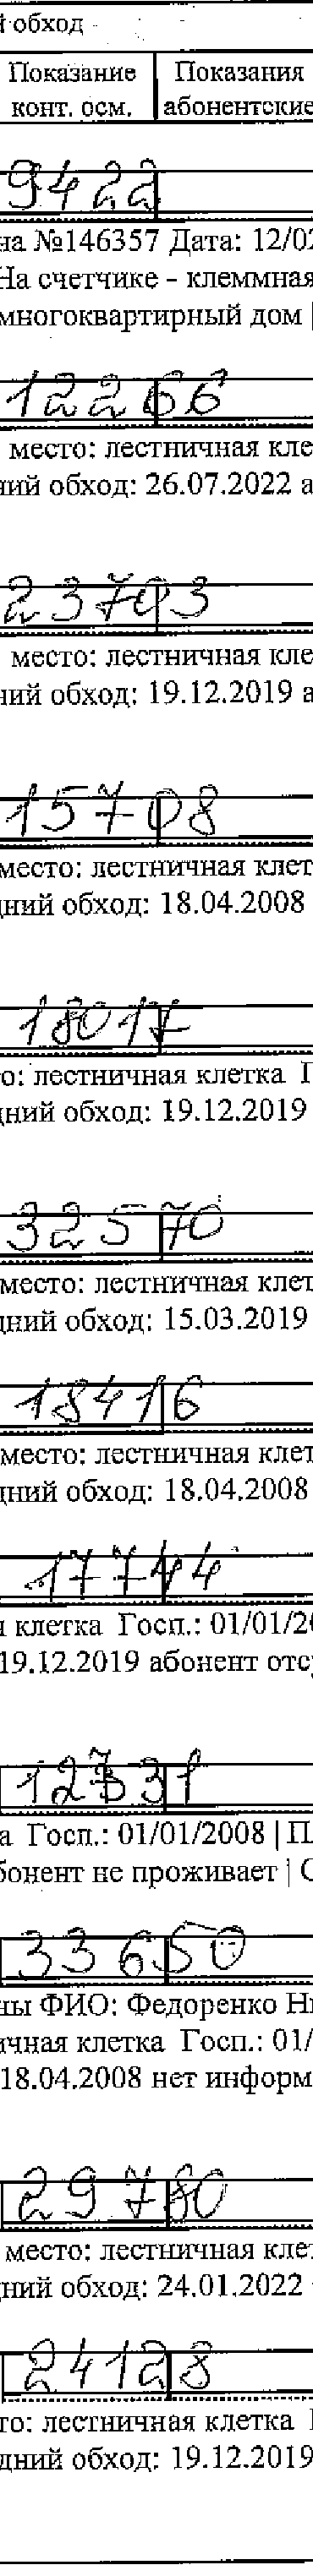 й обход
Показание Показания
конт. осм. абонентские
9422
на №146357 Дата: 12/02
На счетчике - клеммная
многоквартирный дом |
12266
место: лестничная кле
ний обход: 26.07.2022 а
23703
место: лестничная кле
ний обход: 19.12.2019 а
15708
место: лестничная клет
дний обход: 18.04.2008
18017
о: лестничная клетка Г
дний обход: 19.12.2019
32570
место: лестничная клет
дний обход: 15.03.2019
18416
место: лестничная клет
дний обход: 18.04.2008
17744
я клетка Госп.: 01/01/20
19.12.2019 абонент отс
а Госп.: 01/01/2008 | П
бонент не проживает | С
33650
ны ФИО: Федоренко Н
ичная клетка Госп.: 01/
18.04.2008 нет информ
29780
место: лестничная кле
ний обход: 24.01.2022
24128
то: лестничная клетка
дний обход: 19.12.2019